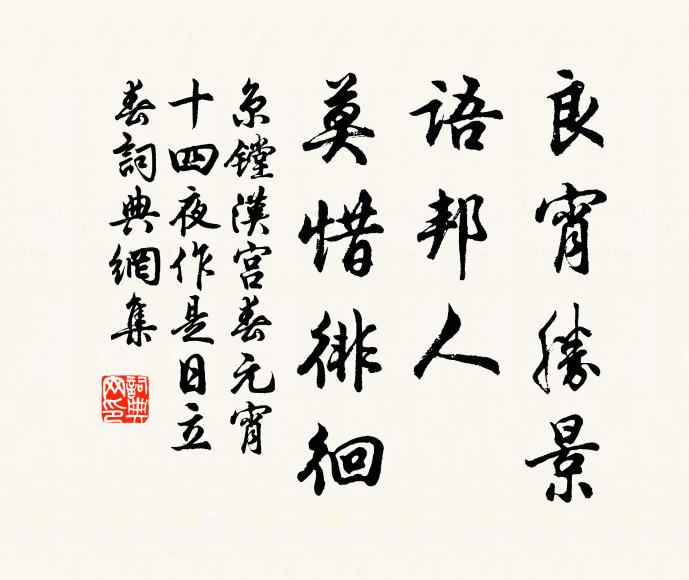 良宵勝景
語邦人
莫惜徘徊
京鏜漢宮春元宵
十四夜作是日立
春詞典網集
詞典
网印